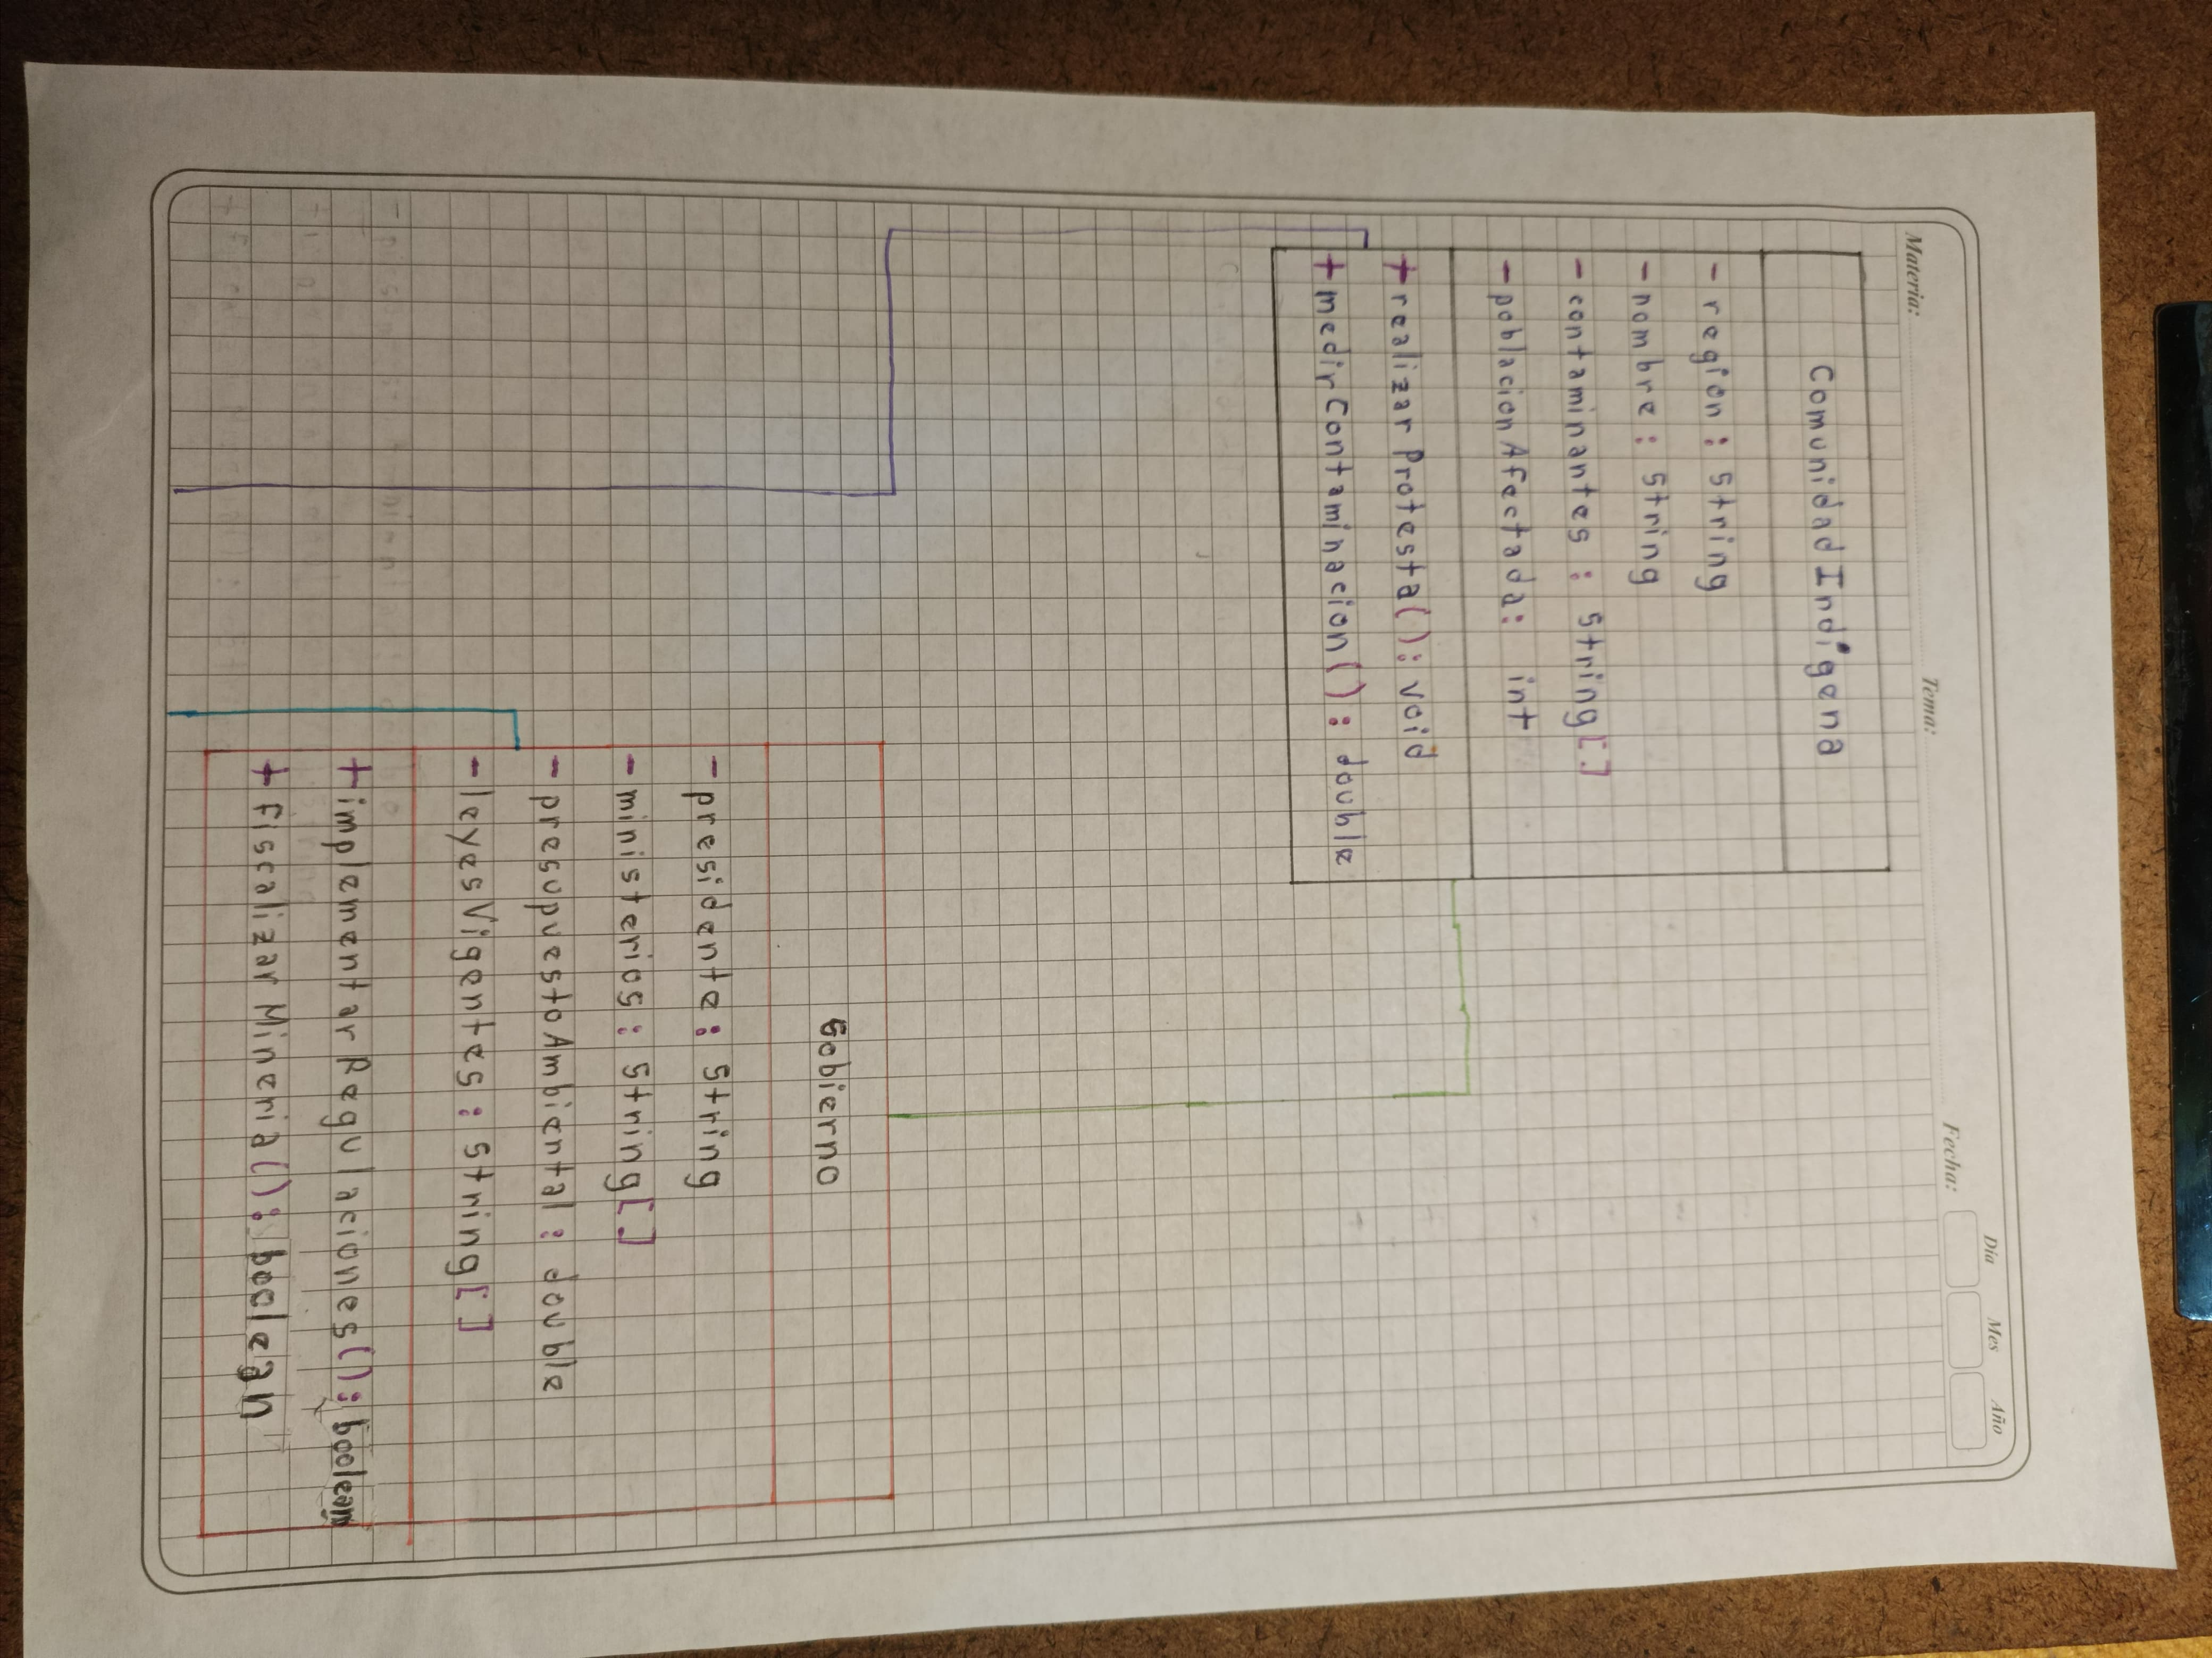 Materia: Tema: Fecha: Día Mes Año
Comunidad Indigena
- region : string
- nombre : string
- contaminantes : string[]
- poblacionAfectada: int
+ realizarProtesta(): void
+ medirContaminacion(): double
Gobierno
- presidente: string
- ministerios: string[]
- presupuestoAmbiental: double
- leyesVigentes: string[]
+ implementarRegulaciones(): boolean
+ fiscalizarMineria(): boolean